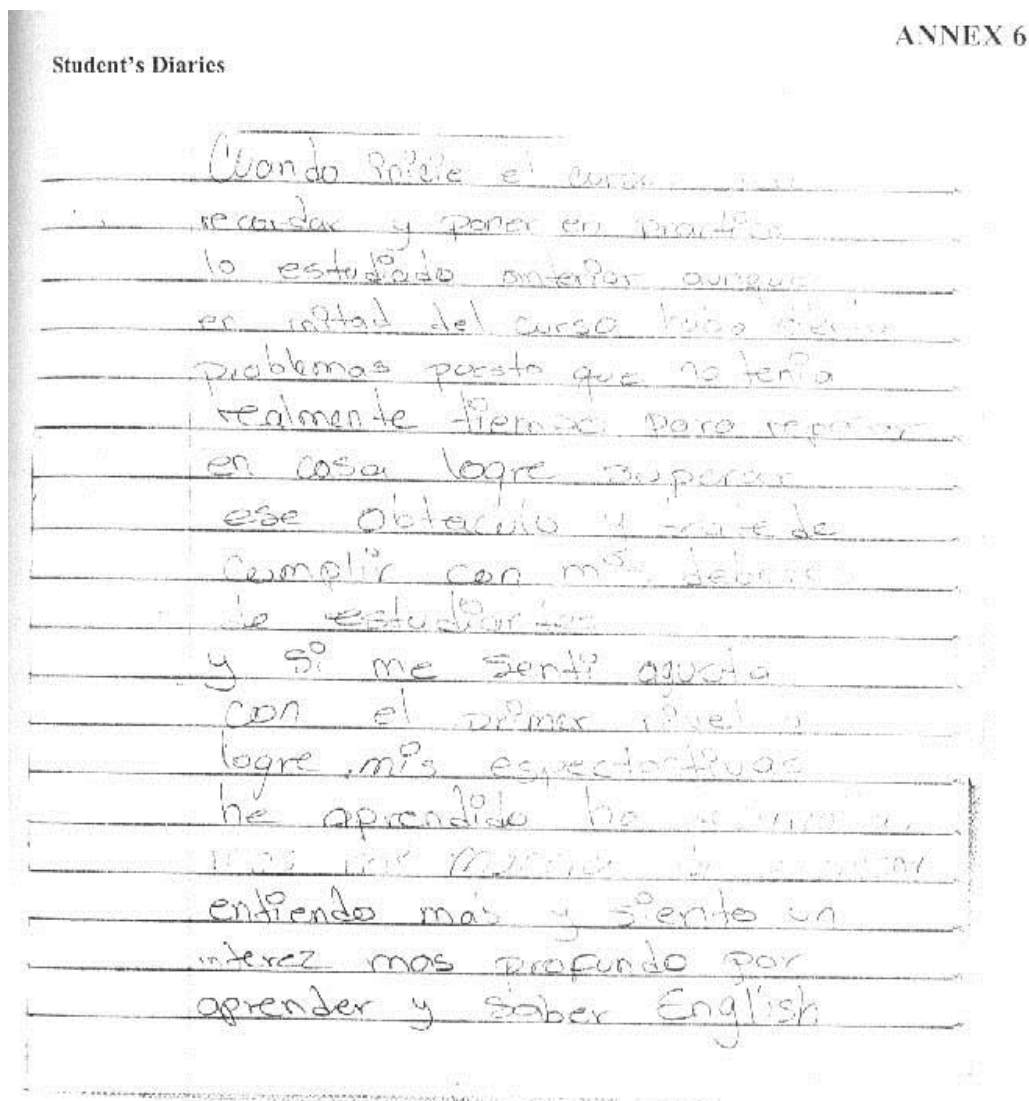 ANNEX 6
Student's Diaries
Cuando inicie el curso
recordar y poner en practica
lo estudiado anterior aunque
en mitad del curso hubo
problemas puesto que no tenia
realmente tiempo para repasar
en casa logre superar
ese obtaculo y trate de
cumplir con mis deberes
de estudiante
y si me senti agusta
con el primer nivel
logre mis espectativas
he aprendido ha
mas mis
entiendo mas y siento un
interez mas profundo por
aprender y saber English